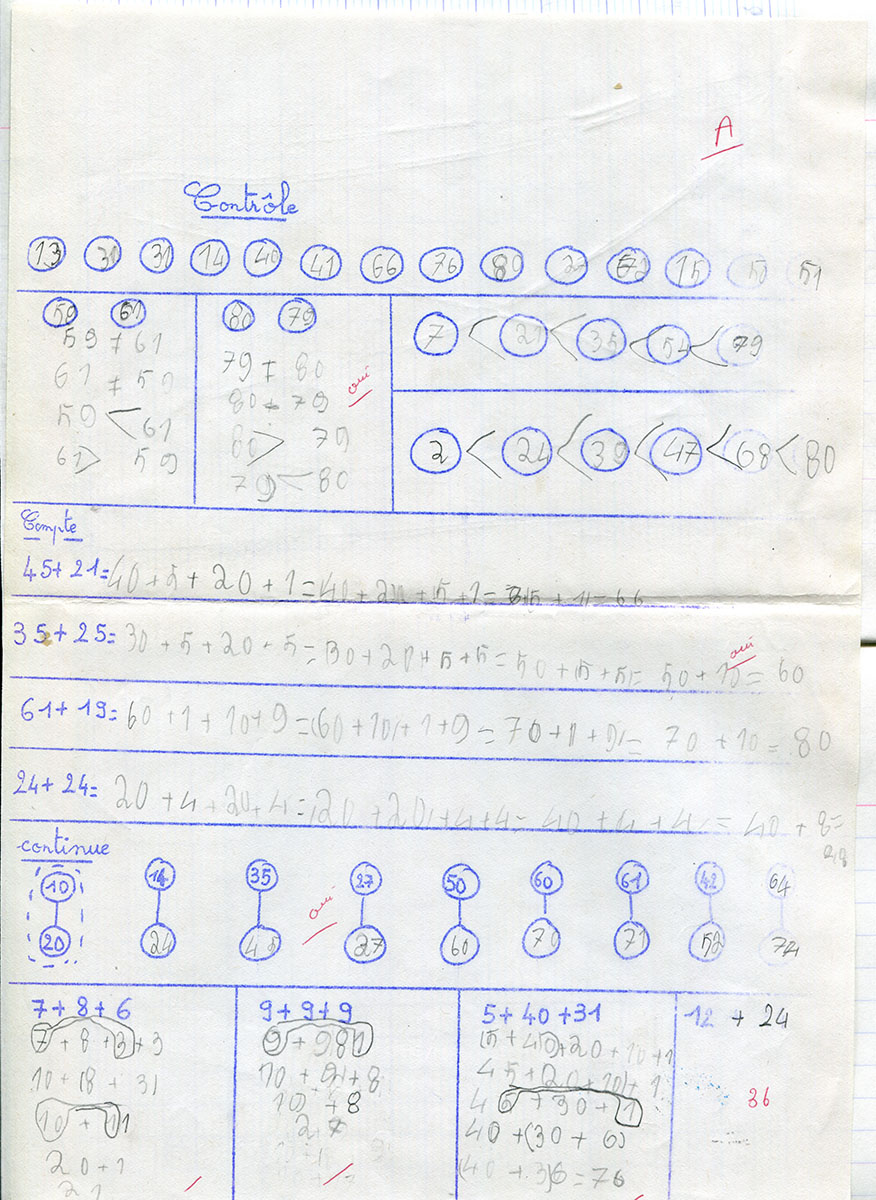 A
Contrôle
13 30 31 14 40 41 66 76 80 15 50 51
59 61
59 ≠ 61
61 ≠ 59
59 < 61
61 > 59
80 79
79 ≠ 80
80 ≠ 79
80 > 79
79 < 80
oui
7 < 21 < 35 < 54 < 79
2 < 24 < 39 < 47 < 68 < 80
Compte
45+21= 40+5+20+1=40+20+5+1= = 66
35+25= 30+5+20+5=30+20+5+5=50+(5+5)= 50+10= 60
oui
61+19= 60+1+10+9=(60+10)+1+9=70+(1+9)= 70+10= 80
24+24= 20+4+20+4=(20+20)+4+4= 40+(4+4)= 40+8=
continue
10 14 35 27 50 60 61 42 64
20 24 45 37 60 70 71 52 74
oui
7+8+6
7+8+3+3
10+(8+3)
10+11
20+1
21
9+9+9
9+981
10+9+8
10+8
27
5+40+31
(5+40)+20+10+1
45+(20+10)+1
45+30+1
40+(30+6)
(40+3)6=76
12 + 24
36